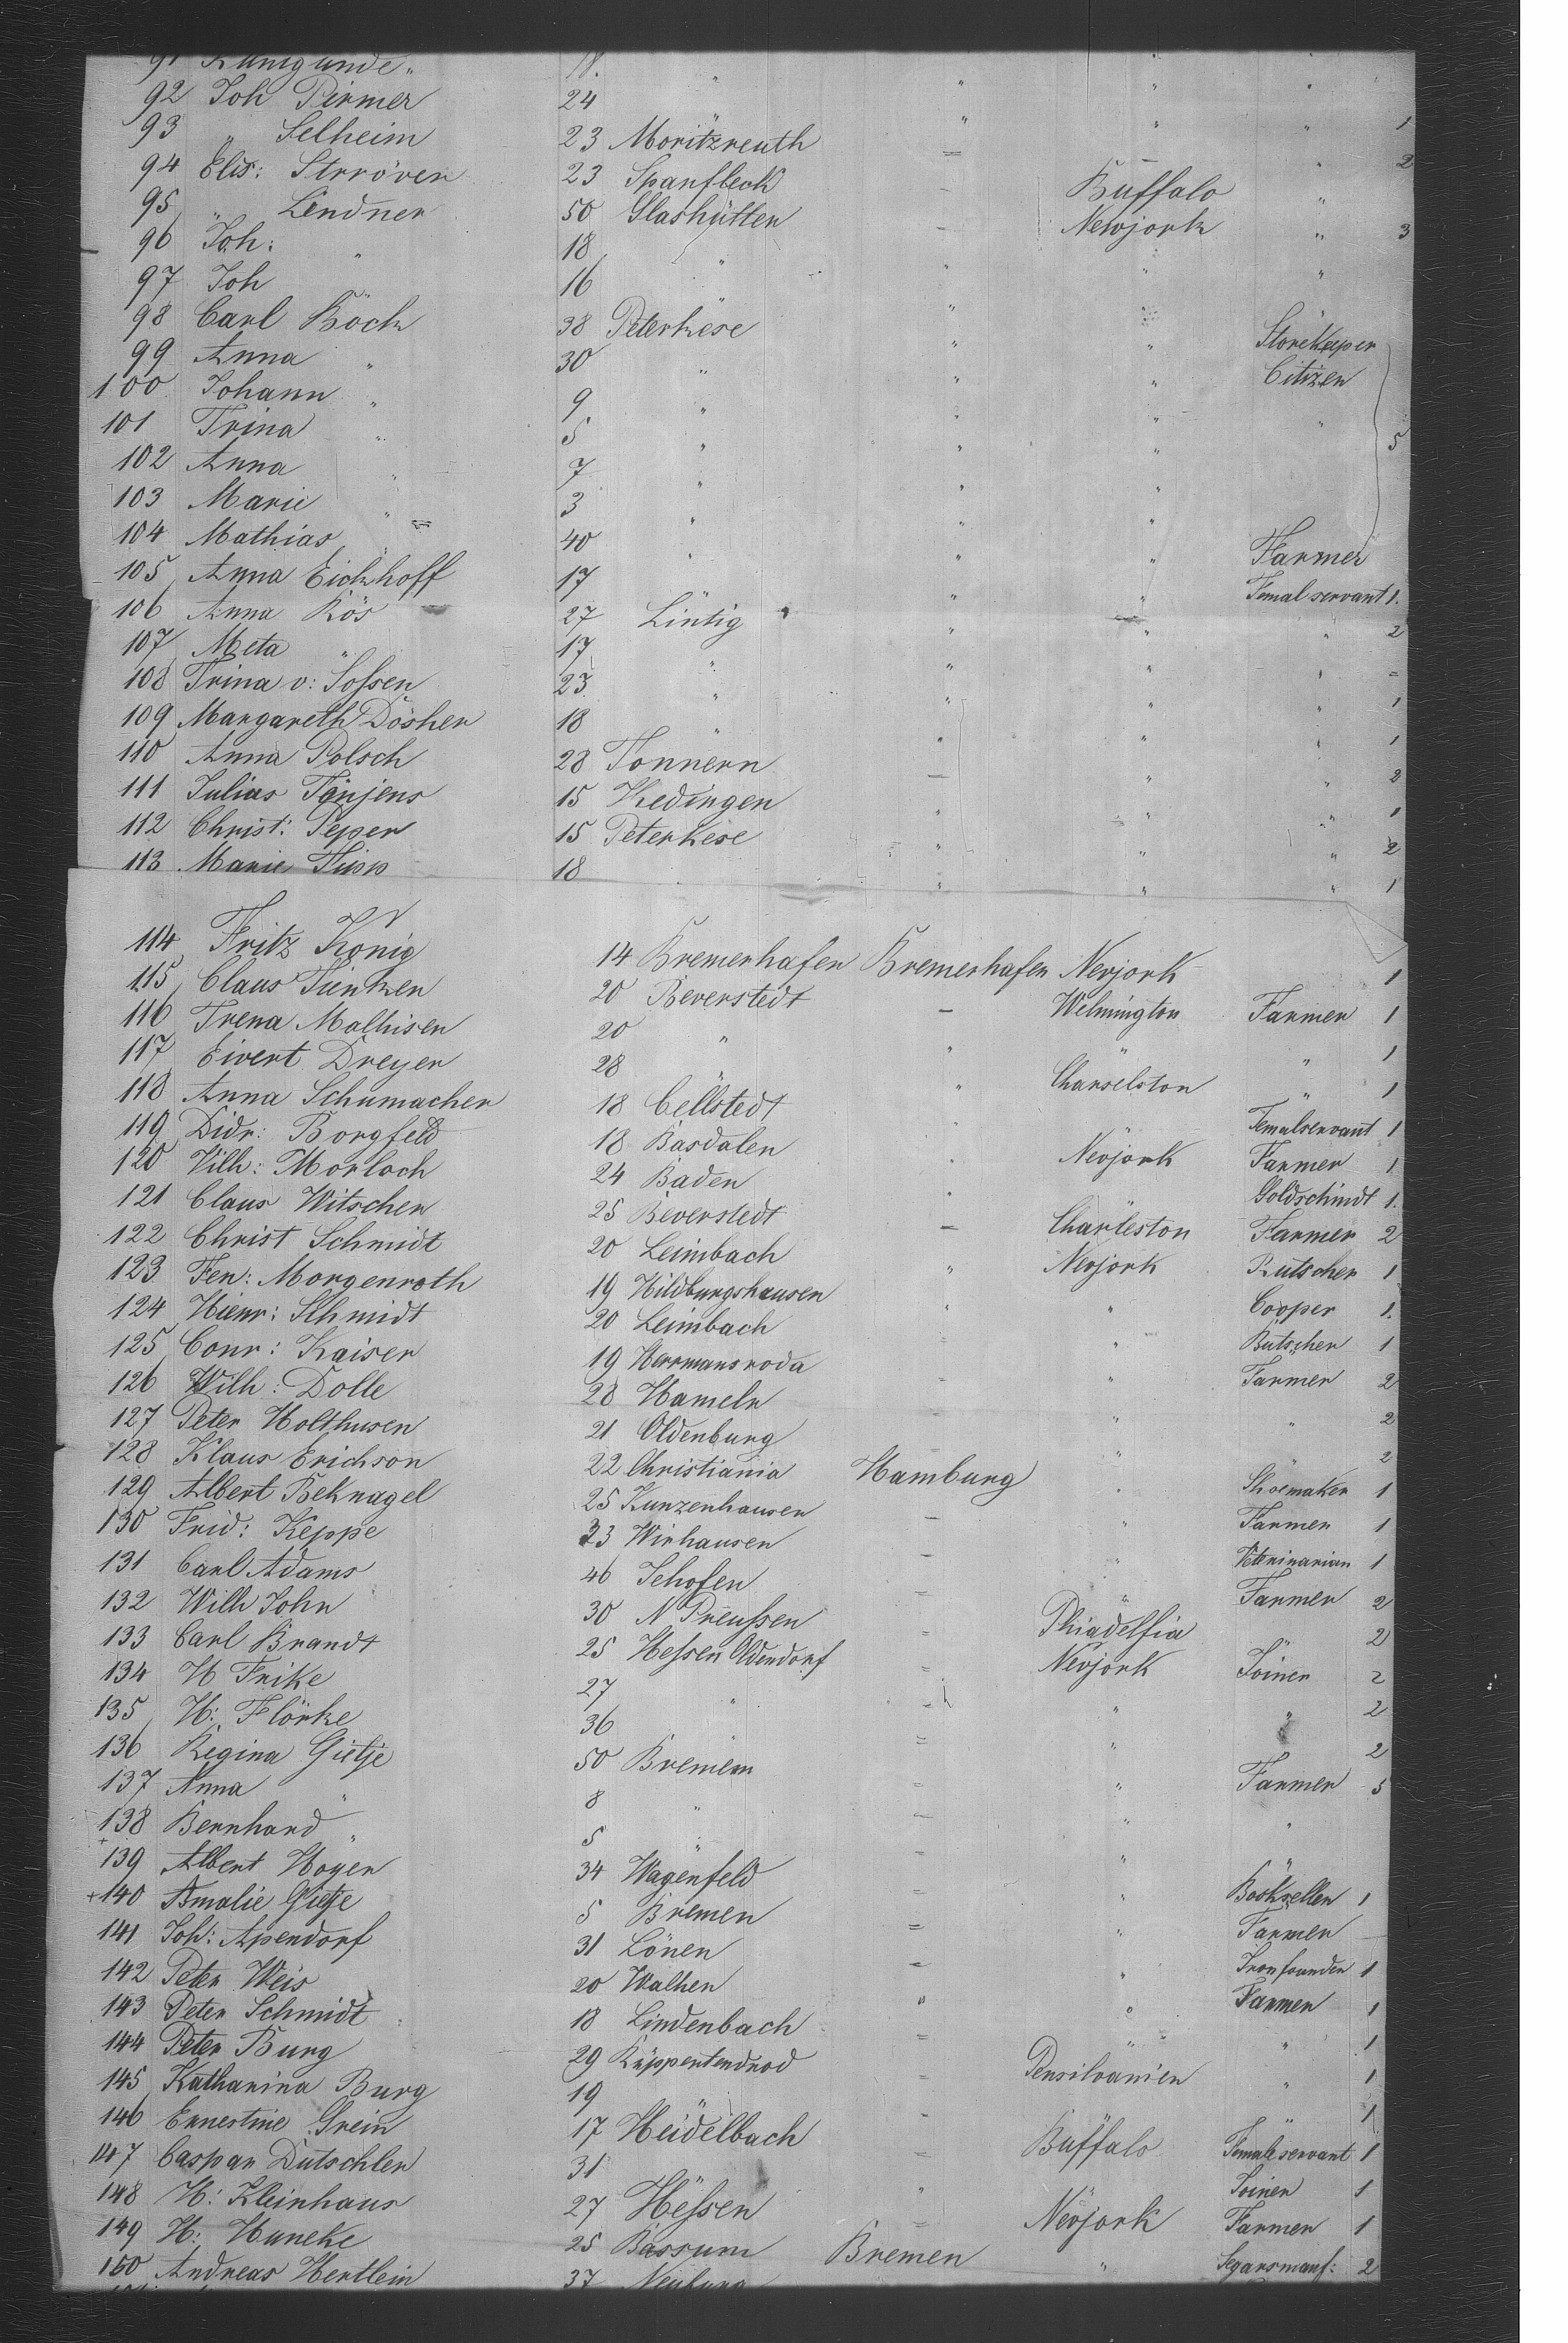 91 Kunigunde " 18. " " " "
92 Joh Pirmer 24 " " " " 1
93 " Selheim 23 Moritzreuth = – " 2
94 Elis: Strröver 23 Spanfleck – Buffalo "
95 " Lindner 50 Glashütten – Newjork " 3
96 Joh: " 18 " " " "
97 Joh " 16 " "
98 Carl Kock 38 Peterkese " " Storekeeper
99 Anna " 30 " " " Citizen
100 Johann " 9 " " " "
101 Trina " 5 " " " 5
102 Anna " 7 " " "
103 Marie " 3 " " "
104 Mathias " 40 " " " Farmer
105 Anna Eickhoff 17 " " Femal servant 1.
106 Anna Kös 27 Lintig " " " 2
107 Meta " 17 " " " " =
108 Trina v: Sossen 23 " " " " 1
109 Margareth Döscher 18 " " " " 1
110 Anna Polsch 28 Tonnern – " " 2
111 Julias Tänjens 15 Kedingen " " " 1
112 Christ: Peper 15 Peterkese " " " 2
113 Marie Tupp 18 " " " 1
114 Fritz Konig 14 Bremerhafen Bremerhafen Nevjork 1
115 Claus Tunken 20 Beverstedt – Welmington Farmer 1
116 Trena Malhisen 20 " " " " 1
117 Eivert Dreyer 28 " " Charselston " 1
118 Anna Schumacher 18 Cellstedt " Femalservant 1
119 Didr: Borgfeld 18 Basdalen " Nevjork Farmer 1
120 Vilh: Morlach 24 Baden " Goldschmidt 1.
121 Claus Witschen 25 Beverstedt – Charleston Farmer 2
122 Christ Schmidt 20 Leimbach " Nevjork Kutscher 1
123 Fen: Morgenroth 19 Hildburgshausen " " Cooper 1.
124 Hienr: Schmidt 20 Leimbach = " Butscher 1
125 Conr: Kaiser 19 Harrmansroda = " Farmer 2
126 Wilh: Dolle 28 Hameln = " " 2
127 Peter Holthusen 21 Oldenburg = " 2
128 Klaus Erichson 22 Christiania Hamburg " Shoemaker 1
129 Albert Beknagel 25 Kunzenhausen – " Farmer 1
130 Frid: Keppe 33 Wirhausen – " Veterinarian 1
131 Carl Adams 46 Sehofen = " Farmer 2
132 Wilh John 30 N Preussen = Phiadelfia " 2
133 Carl Brandt 25 Hessen Oldendorf = Nevjork Joiner 2
134 H Frike 27 " = " " 2
135 H: Flörke 36 " = " " 2
136 Regina Gietje 50 Bremen = " Farmer 5
137 Anna " 8 " = " "
138 Bernhard " 5 " = " "
139 Albert Hoyer 34 Wagenfeld = " Bookseller 1
140 Amalie Gietje 5 Bremen = " Farmer –
141 Joh: Apendorf 31 Lönen = " Ironfounder 1
142 Peter Weis 20 Walhen " " Farmer 1
143 Peter Schmidt 18 Lindenbach = " " 1
144 Peter Burg 29 Kuppentendrod = Pensilvanien " 1
145 Katharina Burg 19 " = " " 1
146 Ernestine Grein 17 Heidelbach = Buffalo Female servant 1
147 Caspar Dutschler 31 " " " Joiner 1
148 H: Kleinhaus 27 Hessen = Nevjork Farmer 1
149 H: Huneke 25 Bassum Bremen " Segarsmanf: 2
150 Andreas Hertlein 37 Neuburg